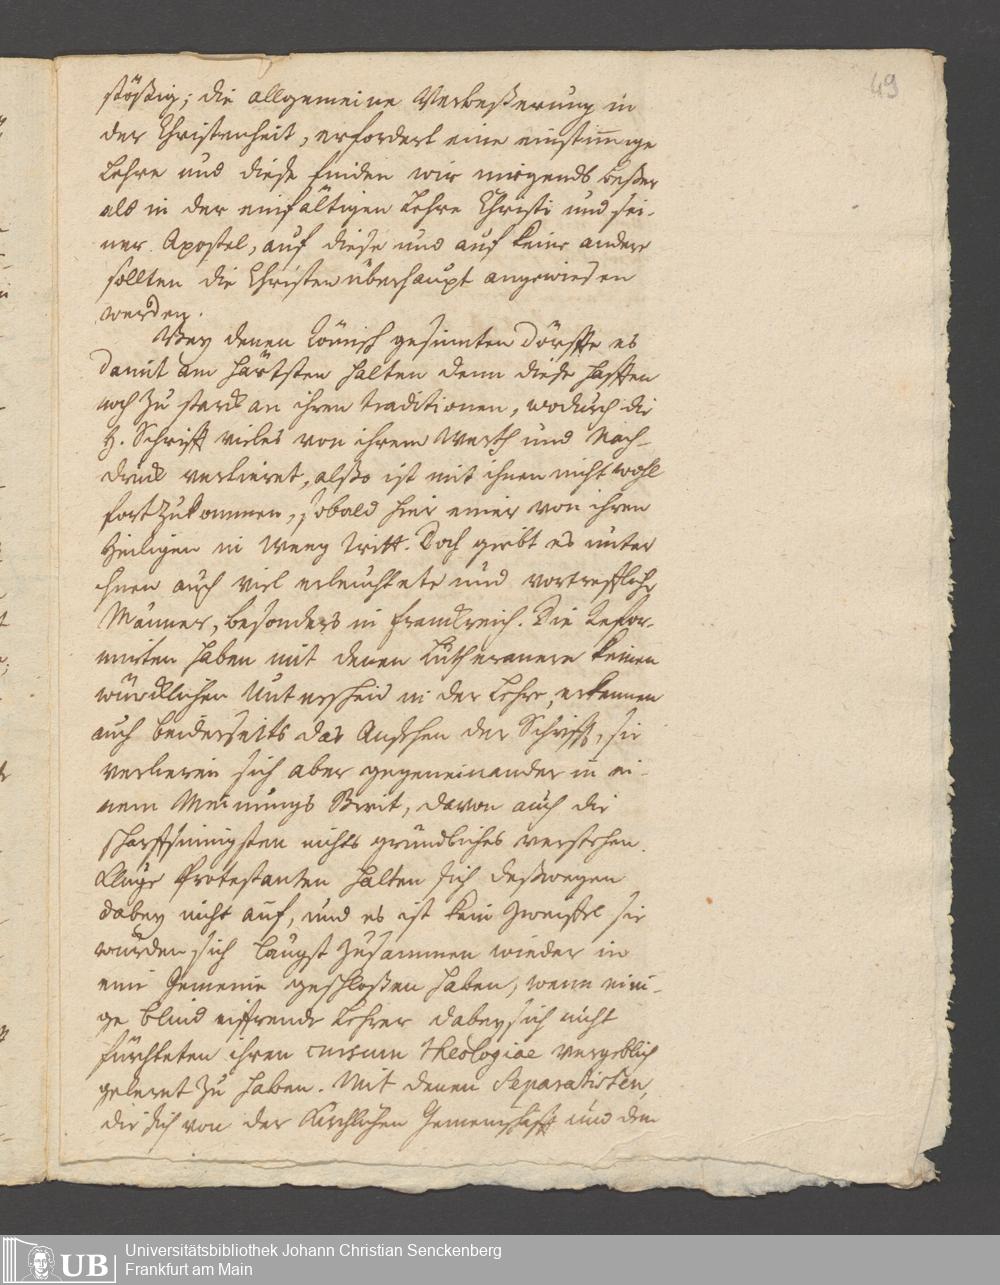 49
stößig; die allgemeine Verbeßerung in
der Christenheit, erfordert eine einstimmige
Lehre und diese finden wir nirgends beßer
als in der einfältigen Lehre Christi und sei-
ner Apostel, auf diese und auf keine andere
sollten die Christen überhaupt angewiesen
werden.
Bey denen Römisch gesinnten dörffte es
damit am härtsten halten denn diese hafften
noch zu starck an ihren traditionen, wodurch die
H. Schrifft vieles von ihrem Werth und Nach-
druck verlieret, alßo ist mit ihnen nicht wohl
fortzukommen, sobald hier einer von ihren
Heiligen in Weeg tritt. Doch giebt es unter
ihnen auch viel erleuchtete und vortreffliche
Männer, besonders in Franckreich. Die Refor-
mirten haben mit denen Lutheranern keinen
würcklichen Unterscheid in der Lehre, erkennen
auch beiderseits das Ansehen der Schrifft, sie
verlieren sich aber gegeneinander in ei-
nem Meinungs Streit, davon auch die
scharffsinnigsten nichts gründliches verstehen.
Kluge Protestanten halten sich deßwegen
dabey nicht auf, und es ist kein Zweiffel sie
wurden sich längst zusammen wieder in
eine Gemeine geschloßen haben, wenn eini-
ge blind eiffrende Lehrer dabey sich nicht
fürchteten ihren cursum theologiae vergeblich
gelernt zu haben. Mit denen Separatisten,
die sich von der Kirchlichen Gemeinschafft und dem
UB
Universitätsbibliothek Johann Christian Senckenberg
Frankfurt am Main